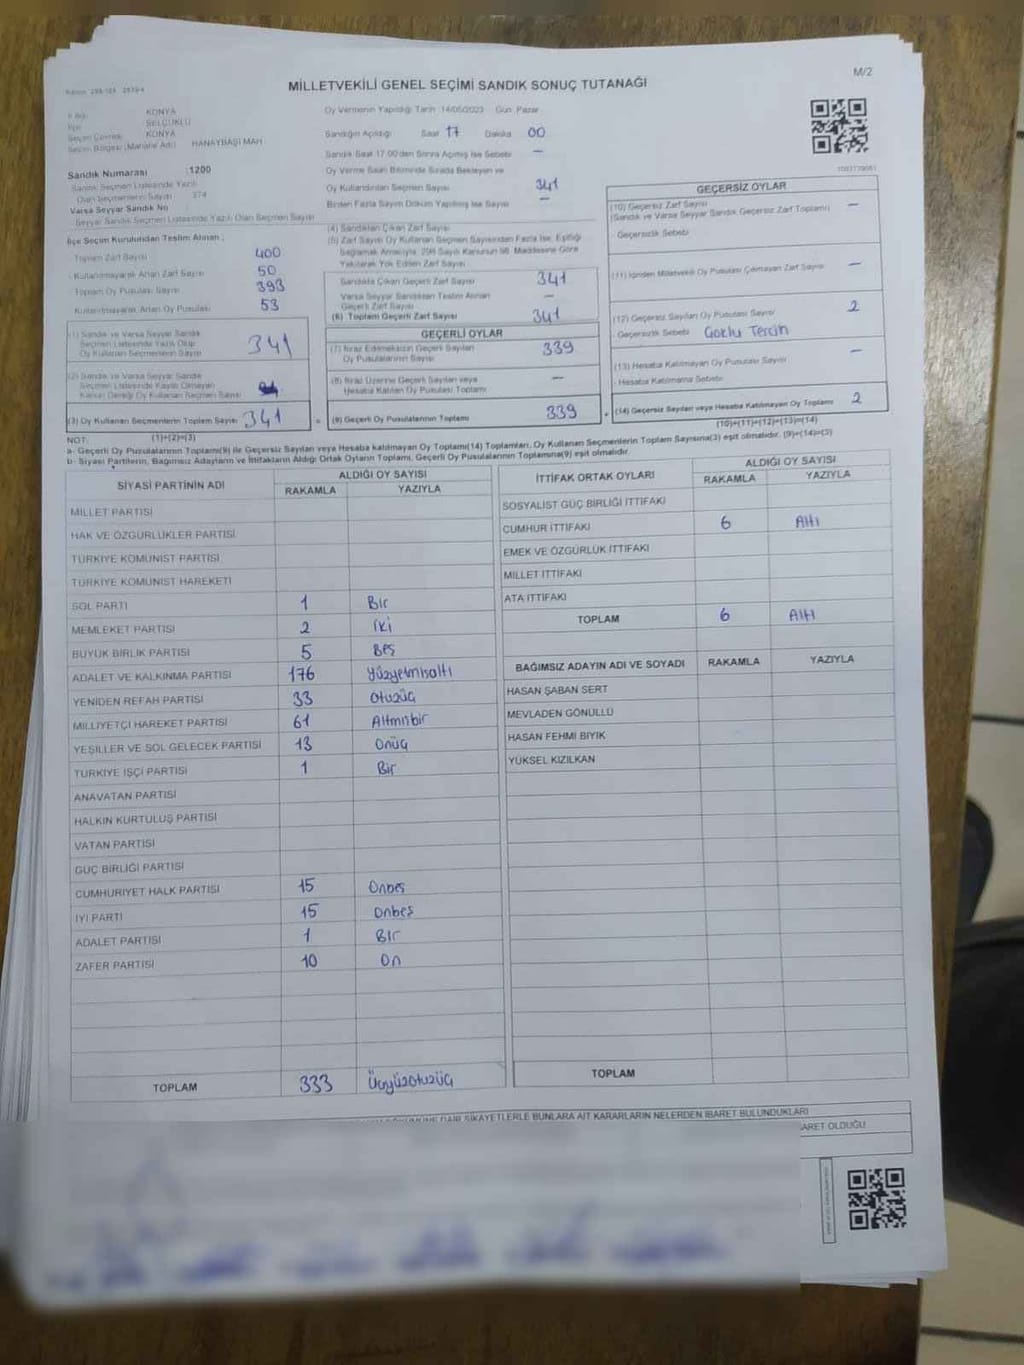 M/2
MİLLETVEKİLİ GENEL SEÇİMİ SANDIK SONUÇ TUTANAĞI
KONYA
SELÇUKLU
KONYA
Seçim Bölgesi (Mahalle Adı) HANAYBAŞI MAH
Oy Vermenin Yapıldığı Tarih 14/05/2023 Gün Pazar
Sandığın Açıldığı Saat 17 Dakika 00
Sandık Saat 17:00'den Sonra Açılmış İse Sebebi –
Oy Verme Saati Bitiminde Sırada Bekleyen ve
Oy Kullandırılan Seçmen Sayısı 341
Birden Fazla Sayım Döküm Yapılmış İse Sayısı –
Sandık Numarası :1200
Sandık Seçmen Listesinde Yazılı
Olan Seçmenlerin Sayısı 374
Varsa Seyyar Sandık No
Seyyar Sandık Seçmen Listesinde Yazılı Olan Seçmen Sayısı
İlçe Seçim Kurulundan Teslim Alınan ;
Toplam Zarf Sayısı 400
Kullanılmayarak Artan Zarf Sayısı 50
Toplam Oy Pusulası Sayısı 393
Kullanılmayarak Artan Oy Pusulası 53
(1) Sandık ve Varsa Seyyar Sandık
Seçmen Listesinde Yazılı Olup
Oy Kullanan Seçmenlerin Sayısı 341
(2) Sandık ve Varsa Seyyar Sandık
Seçmen Listesinde Kayıtlı Olmayan
Kanun Gereği Oy Kullanan Seçmen Sayısı
(3) Oy Kullanan Seçmenlerin Toplam Sayısı 341 =
(1)+(2)=(3)
(4) Sandıktan Çıkan Zarf Sayısı
(5) Zarf Sayısı Oy Kullanan Seçmen Sayısından Fazla İse, Eşitliği
Sağlamak Amacıyla, 298 Sayılı Kanunun 98. Maddesine Göre
Yakılarak Yok Edilen Zarf Sayısı
Sandıkta Çıkan Geçerli Zarf Sayısı 341
Varsa Seyyar Sandıktan Teslim Alınan
Geçerli Zarf Sayısı –
(6) Toplam Geçerli Zarf Sayısı 341
GEÇERLİ OYLAR
(7) İtiraz Edilmeksizin Geçerli Sayılan
Oy Pusulalarının Sayısı 339
(8) İtiraz Üzerine Geçerli Sayılan veya
Hesaba Katılan Oy Pusulası Toplamı –
(9) Geçerli Oy Pusulalarının Toplamı 339 +
GEÇERSİZ OYLAR
(10) Geçersiz Zarf Sayısı –
(Sandık ve Varsa Seyyar Sandık Geçersiz Zarf Toplamı)
Geçersizlik Sebebi
(11) İçinden Milletvekili Oy Pusulası Çıkmayan Zarf Sayısı –
(12) Geçersiz Sayılan Oy Pusulası Sayısı 2
Geçersizlik Sebebi Çoklu Tercih
(13) Hesaba Katılmayan Oy Pusulası Sayısı –
Hesaba Katılmama Sebebi
(14) Geçersiz Sayılan veya Hesaba Katılmayan Oy Toplamı 2
(10)+(11)+(12)+(13)=(14)
NOT:
a- Geçerli Oy Pusulalarının Toplamı(9) ile Geçersiz Sayılan veya Hesaba katılmayan Oy Toplamı(14) Toplamları, Oy Kullanan Seçmenlerin Toplam Sayısına(3) eşit olmalıdır. (9)+(14)=(3)
b- Siyasi Partilerin, Bağımsız Adayların ve İttifakların Aldığı Ortak Oyların Toplamı, Geçerli Oy Pusulalarının Toplamına(9) eşit olmalıdır.
SİYASİ PARTİNİN ADI ALDIĞI OY SAYISI
RAKAMLA YAZIYLA
MİLLET PARTİSİ
HAK VE ÖZGÜRLÜKLER PARTİSİ
TÜRKİYE KOMÜNİST PARTİSİ
TÜRKİYE KOMÜNİST HAREKETİ
SOL PARTİ 1 Bir
MEMLEKET PARTİSİ 2 İki
BÜYÜK BİRLİK PARTİSİ 5 Beş
ADALET VE KALKINMA PARTİSİ 176 Yüzyetmişaltı
YENİDEN REFAH PARTİSİ 33 Otuzüç
MİLLİYETÇİ HAREKET PARTİSİ 61 Altmışbir
YEŞİLLER VE SOL GELECEK PARTİSİ 13 Onüç
TÜRKİYE İŞÇİ PARTİSİ 1 Bir
ANAVATAN PARTİSİ
HALKIN KURTULUŞ PARTİSİ
VATAN PARTİSİ
GÜÇ BİRLİĞİ PARTİSİ
CUMHURİYET HALK PARTİSİ 15 Onbeş
İYİ PARTİ 15 Onbeş
ADALET PARTİSİ 1 Bir
ZAFER PARTİSİ 10 On
TOPLAM 333 Üçyüzotuzüç
İTTİFAK ORTAK OYLARI ALDIĞI OY SAYISI
RAKAMLA YAZIYLA
SOSYALİST GÜÇ BİRLİĞİ İTTİFAKI
CUMHUR İTTİFAKI 6 Altı
EMEK VE ÖZGÜRLÜK İTTİFAKI
MİLLET İTTİFAKI
ATA İTTİFAKI
TOPLAM 6 Altı
BAĞIMSIZ ADAYIN ADI VE SOYADI RAKAMLA YAZIYLA
HASAN ŞABAN SERT
MEVLADEN GÖNÜLLÜ
HASAN FEHMİ BIYIK
YÜKSEL KIZILKAN
TOPLAM
DAİR ŞİKAYETLERLE BUNLARA AİT KARARLARIN NELERDEN İBARET BULUNDUKLARI
OLDUĞU